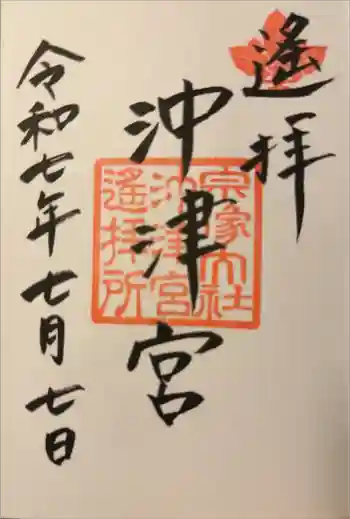 遙拝
沖津宮
令和七年七月七日
宗像大社
沖津宮
遙拝所